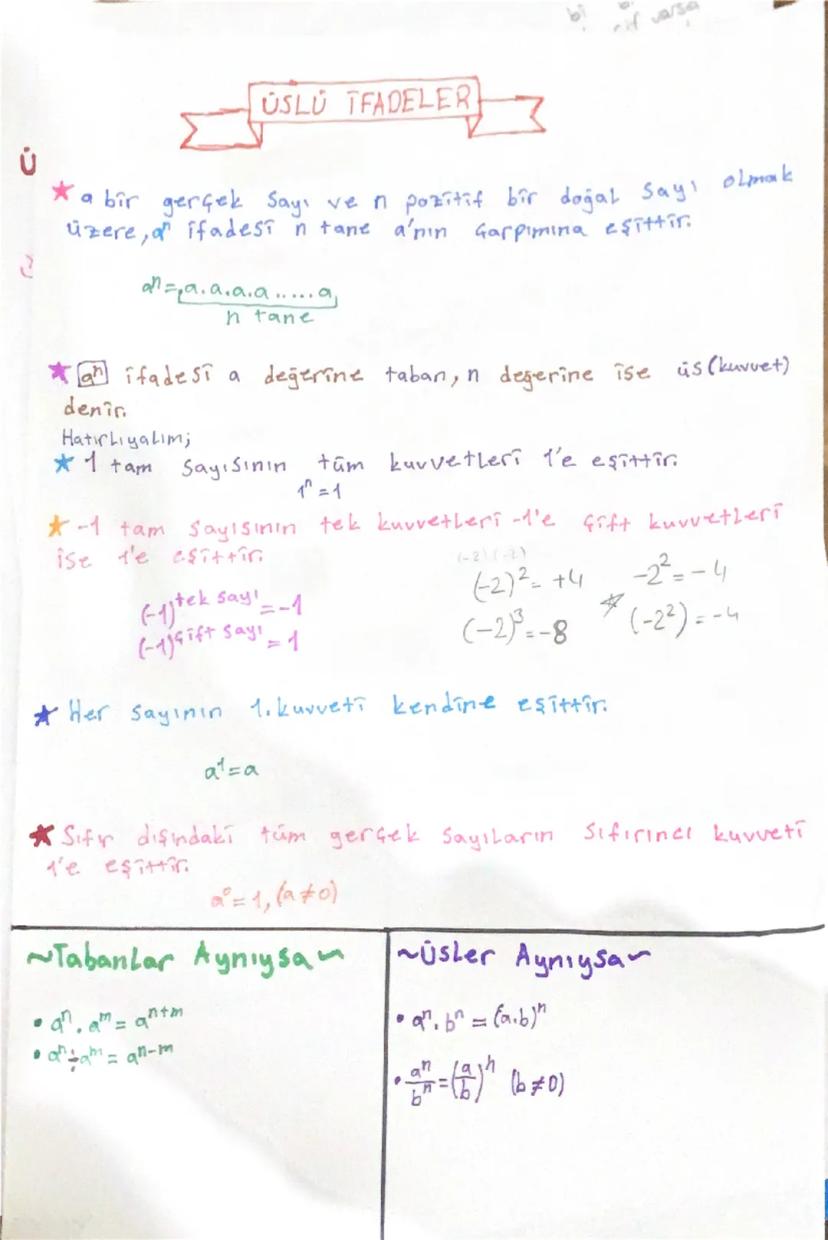 bi
varsa
ÜSLÜ İFADELER
Ü
★ a bir gerçek sayı ve n pozitif bir doğal sayı olmak
üzere, aⁿ ifadesi n tane a'nın çarpımına eşittir.
aⁿ = a.a.a.a.....a
n tane
★ aⁿ ifadesi a değerine taban, n değerine ise üs (kuvvet)
denir.
Hatırlıyalım;
★ 1 tam sayısının tüm kuvvetleri 1'e eşittir.
1ⁿ = 1
★ -1 tam sayısının tek kuvvetleri -1'e çift kuvvetleri
ise 1'e eşittir.
(-1)^tek sayı = -1
(-1)^çift sayı = 1
(-2)(-2)
(-2)² = +4
(-2)³ = -8
-2² = -4
☆ (-2²) = -4
★ Her sayının 1. kuvveti kendine eşittir.
a¹ = a
★ Sıfır dışındaki tüm gerçek sayıların sıfırıncı kuvveti
1'e eşittir.
a⁰ = 1, (a ≠ 0)
~Tabanlar Aynıysa~
• aⁿ . aᵐ = aⁿ⁺ᵐ
• aⁿ ÷ aᵐ = aⁿ⁻ᵐ
~Üsler Aynıysa~
• aⁿ . bⁿ = (a.b)ⁿ
• aⁿ/bⁿ = (a/b)ⁿ (b ≠ 0)